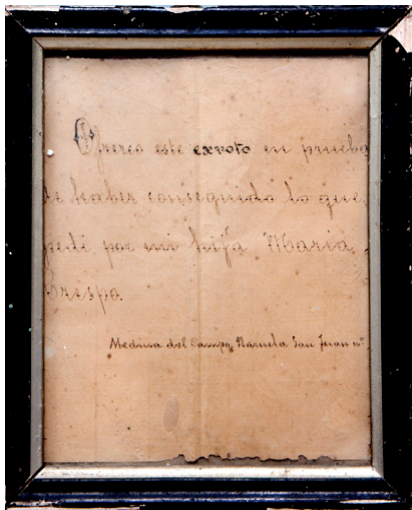 Ofrezco este exvoto en prueba
de haber conseguido lo que
pedi por mi hija Maria
Crespo.
Medina del Campo, San Juan